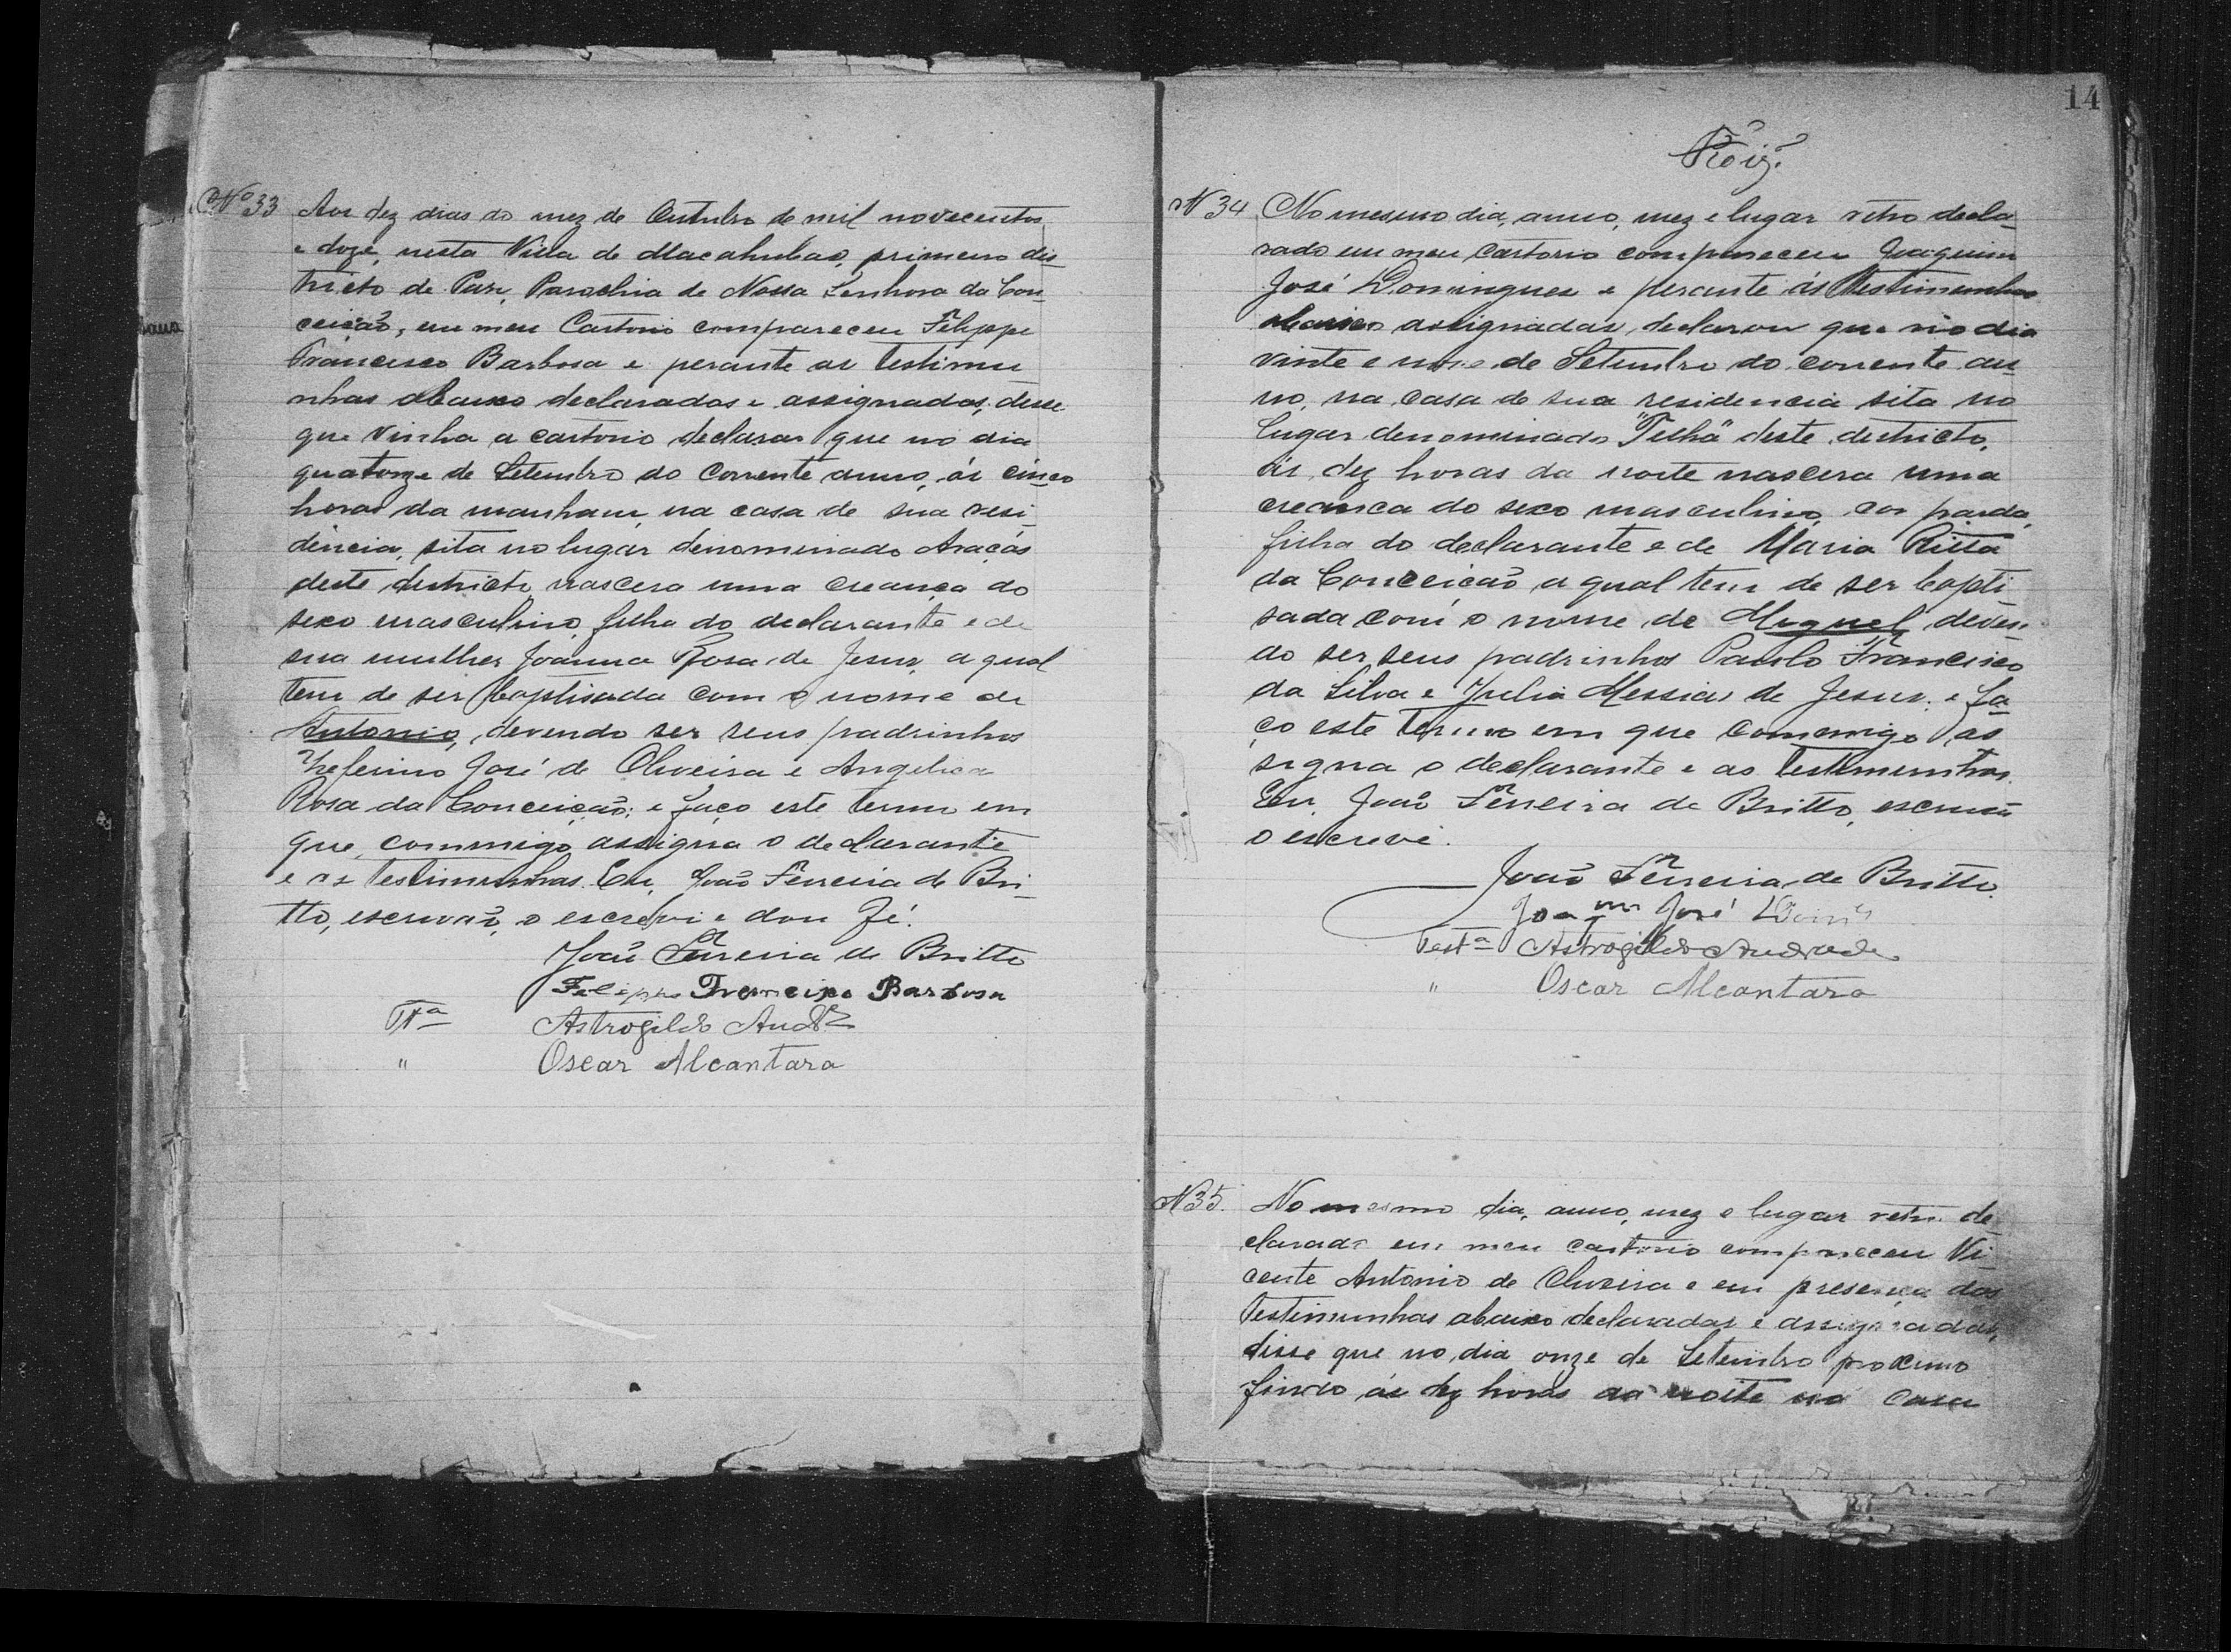 Nº 33 Aos dez dias do mez de Outubro de mil novecentos
e doze, nesta Villa de Macahubas, primeiro dis-
tricto de Paz, Parochia de Nossa Senhora da Con-
ceição, em meu Cartorio compareceu Felippe
Francisco Barbosa e perante as testimu
nhas abaixo declaradas e assignadas, disse
que vinha a cartorio declarar que no dia
quatorze de Setembro do corrente anno, ás cinco
horas da manhan, na casa de sua resi-
dencia, sita no lugar denominado Araçás
deste districto, nascera uma creança do
sexo masculino, filha do declarante e de
sua mulher Joanna Rosa de Jesus, a qual
tem de ser baptisada com o nome de
Antonio, devendo ser seus padrinhos
Zeferino José de Oliveira e Angelica
Rosa da Conceição; e faço este termo em
que, commigo assigna o declarante
e as testimunhas. Eu, João Ferreira de Bri-
tto, escrivão, o escrevi e dou fé.
João Ferreira de Britto
Felippe Francisco Barbosa
Tta Astrogildo Andre
" Oscar Alcantara
14
Roiz.
N 34 No mesmo dia, anno, mez e lugar retro decla-
rado em meu cartorio compareceu Joaquim
José Domingues e perante ás testimunhas
abaixo assignadas, declarou que no dia
vinte e nove de Setembro do corrente an-
no, na casa de sua residencia sita no
lugar denominado "Telha" deste districto,
ás dez horas da noite nascera uma
creança do sexo masculino, cor parda,
filha do declarante e de Maria Ritta
da Conceição a qual tem de ser bapti
sada com o nome de Miguel, deven-
do ser seus padrinhos Paulo Francisco
da Silva e Julia Messias de Jesus; e fa-
ço este termo em que commigo as
signa o declarante e as testimunhas.
Eu, João Ferreira de Britto, escrivão
o escrevi.
João Ferreira de Britto.
Joaqm José
Testa Astrogildo Andrade
" Oscar Alcantara
N 35. No mesmo dia, anno, mez e lugar retro de
clarado em meu cartorio compareceu Vi-
cente Antonio de Oliveira e em presença das
testimunhas abaixo declaradas e assignadas,
disse que no dia onze de Setembro proximo
findo ás dez horas da noite na casa